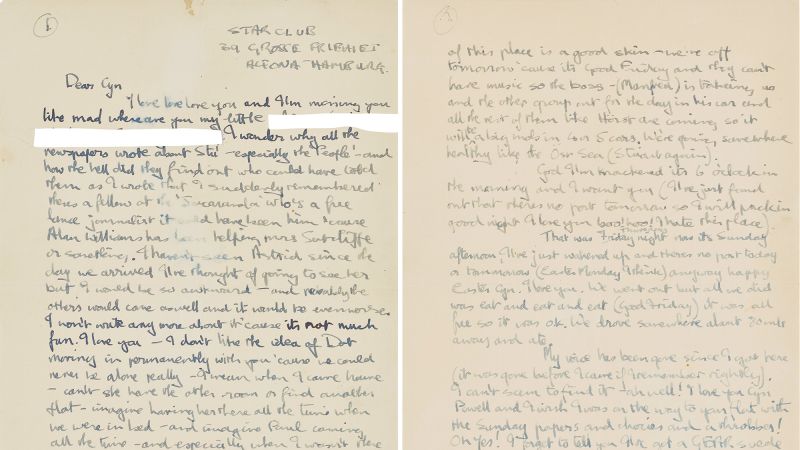 1
STAR CLUB
39 GROSSE FREIHEIT
ALTONA HAMBURG.
Dear Cyn
I love love love you and I'm missing you
like mad where are you my little
I wonder why all the
newspapers wrote about Stu - especially the 'People' - and
how the hell did they find out who could have told
them as I wrote that I suddenly remembered
theres a fellow at the 'Jacaranda' who's a free
lance journalist it could have been him 'cause
Alan Williams has been helping mrs Sutcliffe
or something. I haven't seen Astrid since the
day we arrived I've thought of going to see her
but I would be so awkward - and probably the
others would come as well and it would be even worse.
I won't write any more about it 'cause it's not much
fun. I love you - I don't like the idea of Dot
moving in permanently with you 'cause we could
never be alone really - I mean when I come home
- can't she have the other room or find another
flat - imagine having her there all the time when
we were in bed - and imagine Paul coming
all the time - and especially when I wasn't there
2
of this place is a good skin - we're off
tomorrow 'cause its Good Friday and they can't
have music so the boss - (Manfred) is taking us
and the other group out for the day in his car and
all the rest of them like Horst are coming so it
will be a big mob in 4 or 5 cars. We're going somewhere
healthy like the Ost Sea (Stuart again).
God I'm knackered it's 6 o'clock in
the morning and I want you (I've just found
out that there's no post tomorrow so I will pack in
good night. I love you boo! hoo! I hate this place).
That was Thursday night now its Sunday
afternoon. I've just wakened up and theres no post today
or tomorrow (Easter Monday I think) anyway happy
Easter Cyn. I love you. We went out but all we did
was eat and eat and eat (Good Friday) it was all
free so it was ok. We drove somewhere about 80 miles
away and ate.
My voice has been gone since I got here
(it was gone before I came if I remember rightly).
I can't seem to find it - ah well! I love you Cyn
Powell and I wish I was on the way to your flat with
the Sunday papers and chocies and a throbber!
Oh Yes! I forgot to tell you I've got a GEAR suede